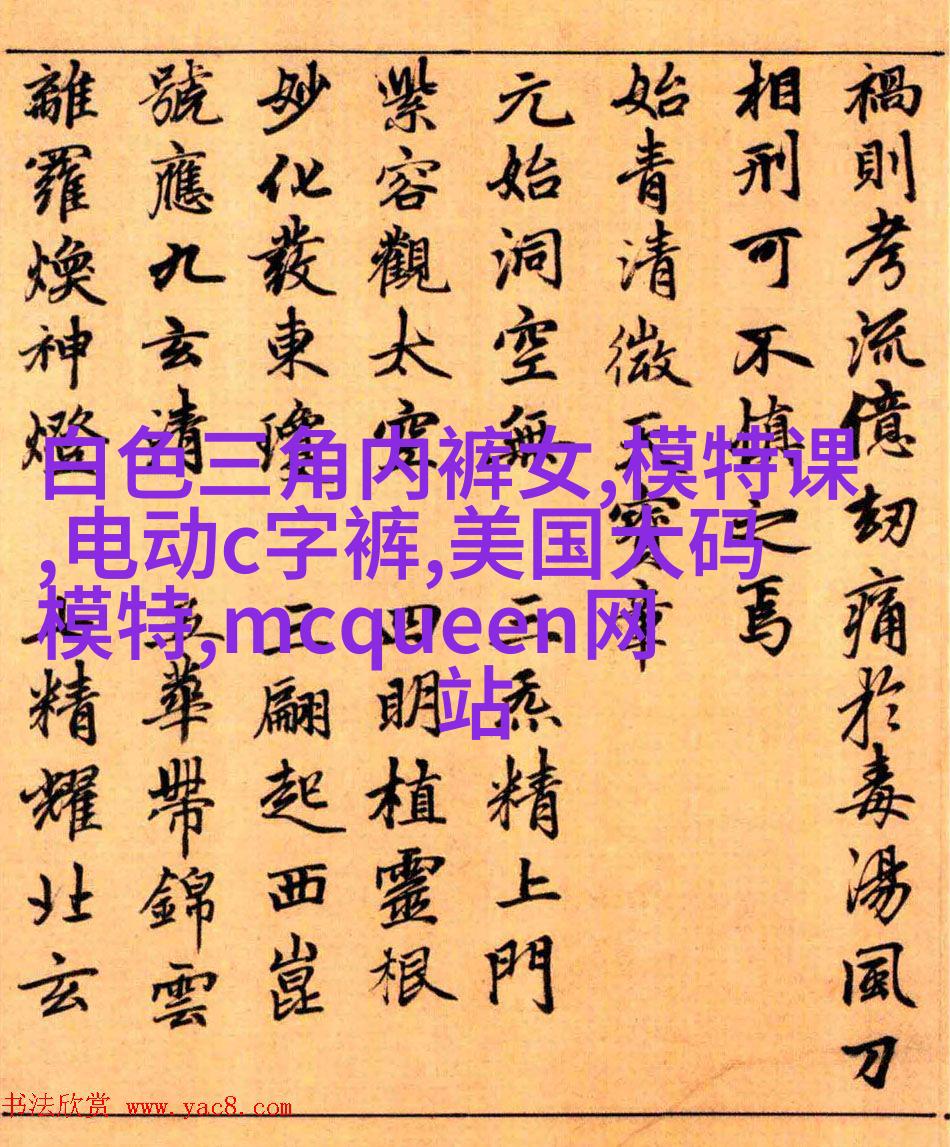 禍則考流億劫痛於毒湯風刀
相刑可不慎之焉
始青清微天寶章
元始洞空無 三炁精上門
紫容觀太空 四明植靈根
妙化發東 三翩起西崑
號應九玄清 華帶錦雲
離羅煥神燈 精耀北玄
白色三角内裤女,模特课
,电动c字裤,美国大码
模特,mcqueen网
站
书法欣赏 www.yac8.com